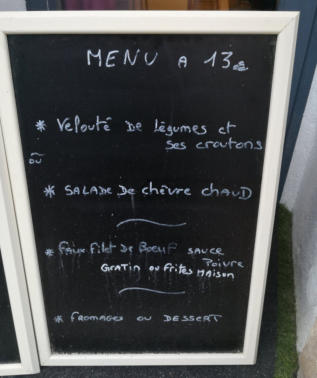 MENU A 13€
* Velouté De Légumes et
ses croutons
ou
* SALADE De chèvre chAuD
* FAux Filet De Boeuf SAUCE
Poivre
GRATIN ou FRites MAison
* FROMAGES OU DESSERT